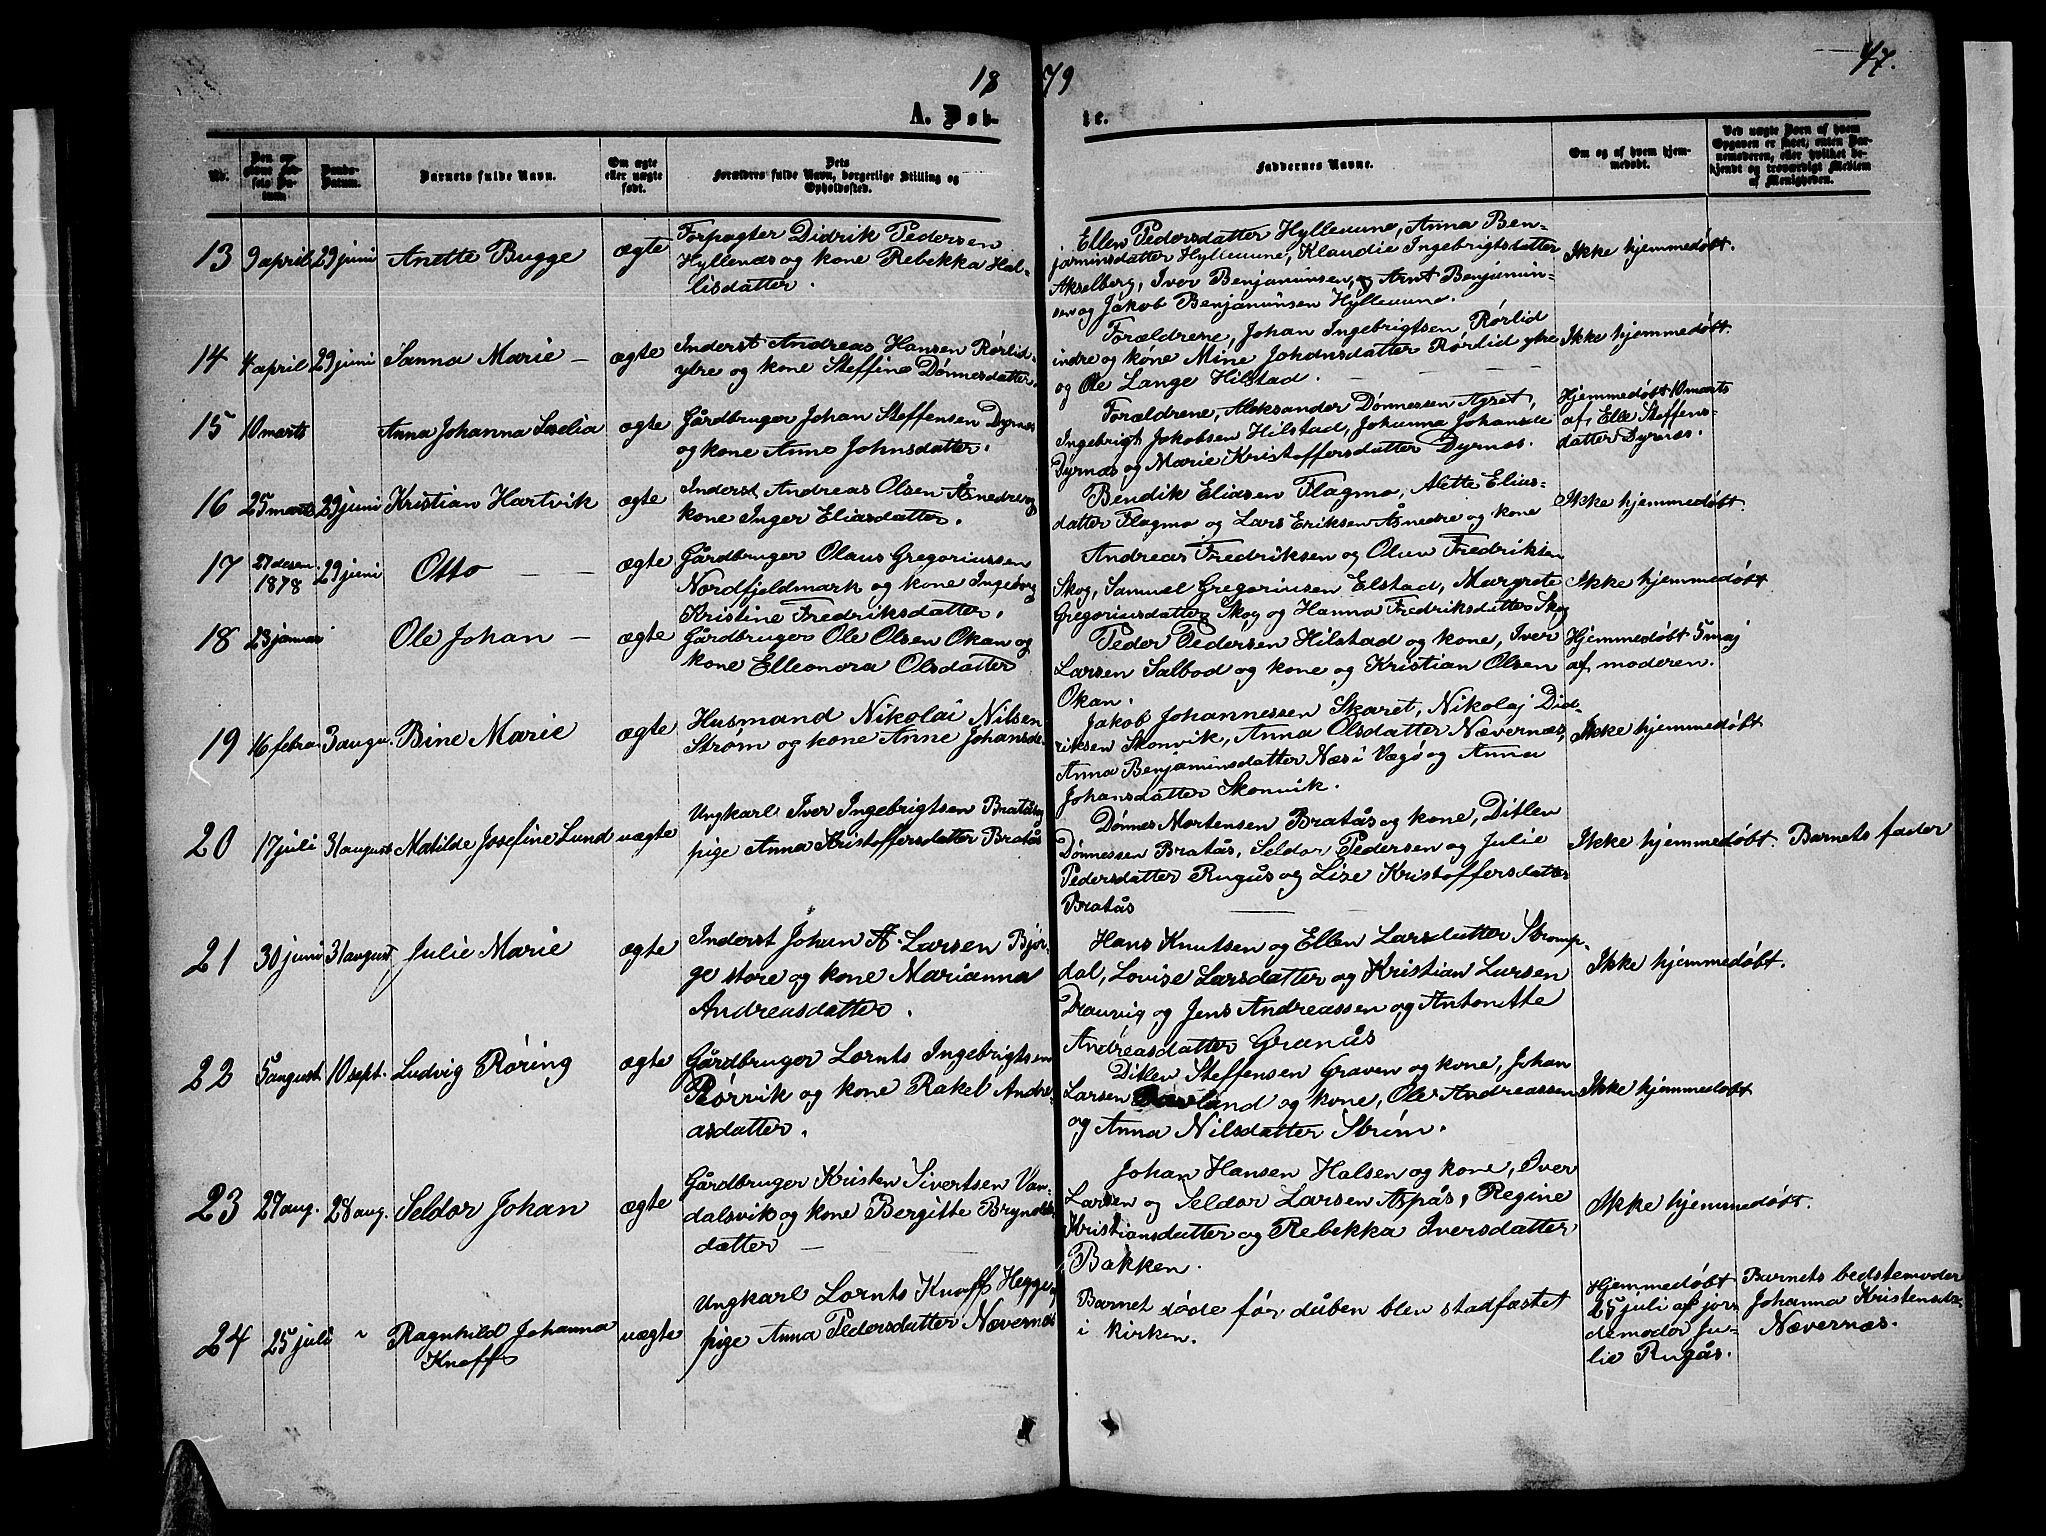 1879
47.
A. Døbte.
No.
Barnets fulde Navn.
Om ægte eller uægte født.
Forældres fulde Navn, borgerlige Stilling og Opholdssted.
Faddernes Navne.
Om og af hvem hjemmedøbt.
13 9 april 29 juni Anette Bugge ægte
Forpagter Didrik Pedersen
Hyllenæs og kone Rebekka Hal-
lisdatter.
Ellen Pedersdatter Hylleunne, Anna Ben-
jaminsdatter Hylleunne, Klaudie Ingebrigtsdatter
Akselberg, Iver Benjaminsen, Arnt Benjamin-
sen og Jakob Benjaminsen Hylleunne.
Ikke hjemmedøbt.
14 4 april 29 juni Sanna Marie - ægte
Inderst Andreas Hansen Rørlid
ytre og kone Steffine Dønnesdatter.
Forældrene, Johan Ingebrigtsen, Rørlid
indre og kone Mine Johansdatter Rørlid ytre
og Ole Lange Hilstad.
Ikke hjemmedøbt.
15 10 marts Anna Johanna Selia ægte
Gårdbruger Johan Steffensen Dyrnæs
og kone Anne Johnsdatter.
Forældrene, Aleksander Dønnessen Agset,
Ingebrigt Jakobsen Hilstad, Johanna Johansda
Dyrnæs og Marie Kristoffersdatter Dyrnæs.
Hjemmedøbt 10 marts
af Elle Steffens-
datter Dyrnæs.
16 25 marts 29 juni Kristian Hartvik ægte
Inderst Andreas Olsen Åsnedre og
kone Inger Eliasdatter.
Bendik Eliasen Flagmo, Alette Elias-
datter Flagmo og Lars Eriksen Åsnedre og kone
Ikke hjemmedøbt.
17 27 desem. 1878 29 juni Otto - - ægte
Gårdbruger Olaus Gregoriussen
Nordfjeldmark og kone Ingeborg
Kristine Fredriksdatter.
Andreas Fredriksen og Oluv Fredriksen
Skog, Samuel Gregoriusen Elstad, Margrete
Gregoriusdatter Skog og Hanna Fredriksdatter Skog
Ikke hjemmedøbt
18 23 januar Ole Johan - ægte
Gårdbruger Ole Olsen Okan og
kone Elleonora Olsdatter
Peder Pedersen Hilstad og kone, Iver
Larsen Salbod og kone og Kristian Olsen
Okan.
Hjemmedøbt 5 maj
af moderen.
19 16 febru. 3 augu. Bine Marie ægte
Husmand Nikolai Nilsen
Strøm og kone Anne Johansda.
Jakob Johannessen Skaret, Nikolaj Did-
riksen Skonvik, Anna Olsdatter Nævernæs,
Anna Benjaminsdatter Næs i Vægø og Anna
Johansdatter Skonvik.
Ikke hjemmedøbt
20 17 juli 31 august Matilde Josefine Lund uægte
Ungkarl Iver Ingebrigtsen Bratås og
pige Anna Kristoffersdatter Bratås
Dønnes Mortensen Bratås og kone, Ditlev
Dønnessen Bratås, Seldor Pedersen og Julie
Pedersdatter Rugås og Lise Kristoffersdatter
Bratås
Ikke hjemmedøbt. Barnets fader
21 30 juni 31 august Julie Marie ægte
Inderst Johan A. Larsen Bjør-
ge store og kone Marianna
Andreasdatter.
Hans Knutsen og Ellen Larsdatter Stromp-
dal, Lovise Larsdatter og Kristian Larsen
Drauvig og Jens Andreassen og Antonette
Andreasdatter Granås
Ikke hjemmedøbt.
22 5 august 10 sept. Ludvig Røring ægte
Gårdbruger Lornts Ingebrigtsen
Rørvik og kone Rakel Andre-
asdatter.
Ditlev Steffensen Graven og kone, Johan
Larsen og kone, Ole Andreassen
og Anna Nilsdatter Strøm.
Ikke hjemmedøbt
23 27 aug. 28 aug. Seldor Johan ægte
Gårdbruger Kristen Sivertsen Van-
dalsvik og kone Bergitte Brynolds-
datter -
Johan Hansen Halsen og kone, Iver
Larsen og Seldor Larsen Aspås, Regine
Kristiansdatter og Rebekka Iversdatter
Bakken.
Ikke hjemmedøbt.
24 25 juli " Ragnhild Johanna uægte
Knoff
Ungkarl Lornts Knoff Hegge og
pige Anna Pedersdatter Nævernæs
Barnet døde før dåben blev stadfæstet
i kirken.
Hjemmedøbt
25 juli af jor-
demoder Ju-
lie Rugås.
Barnets bedstemoder
Johanna Kristensda.
Nævernæs.